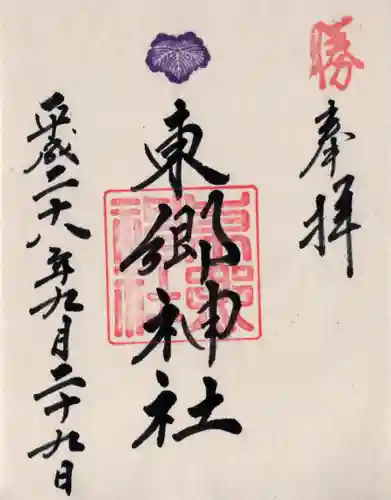 勝
奉拝
東郷神社
東郷神社
平成二十八年九月二十九日